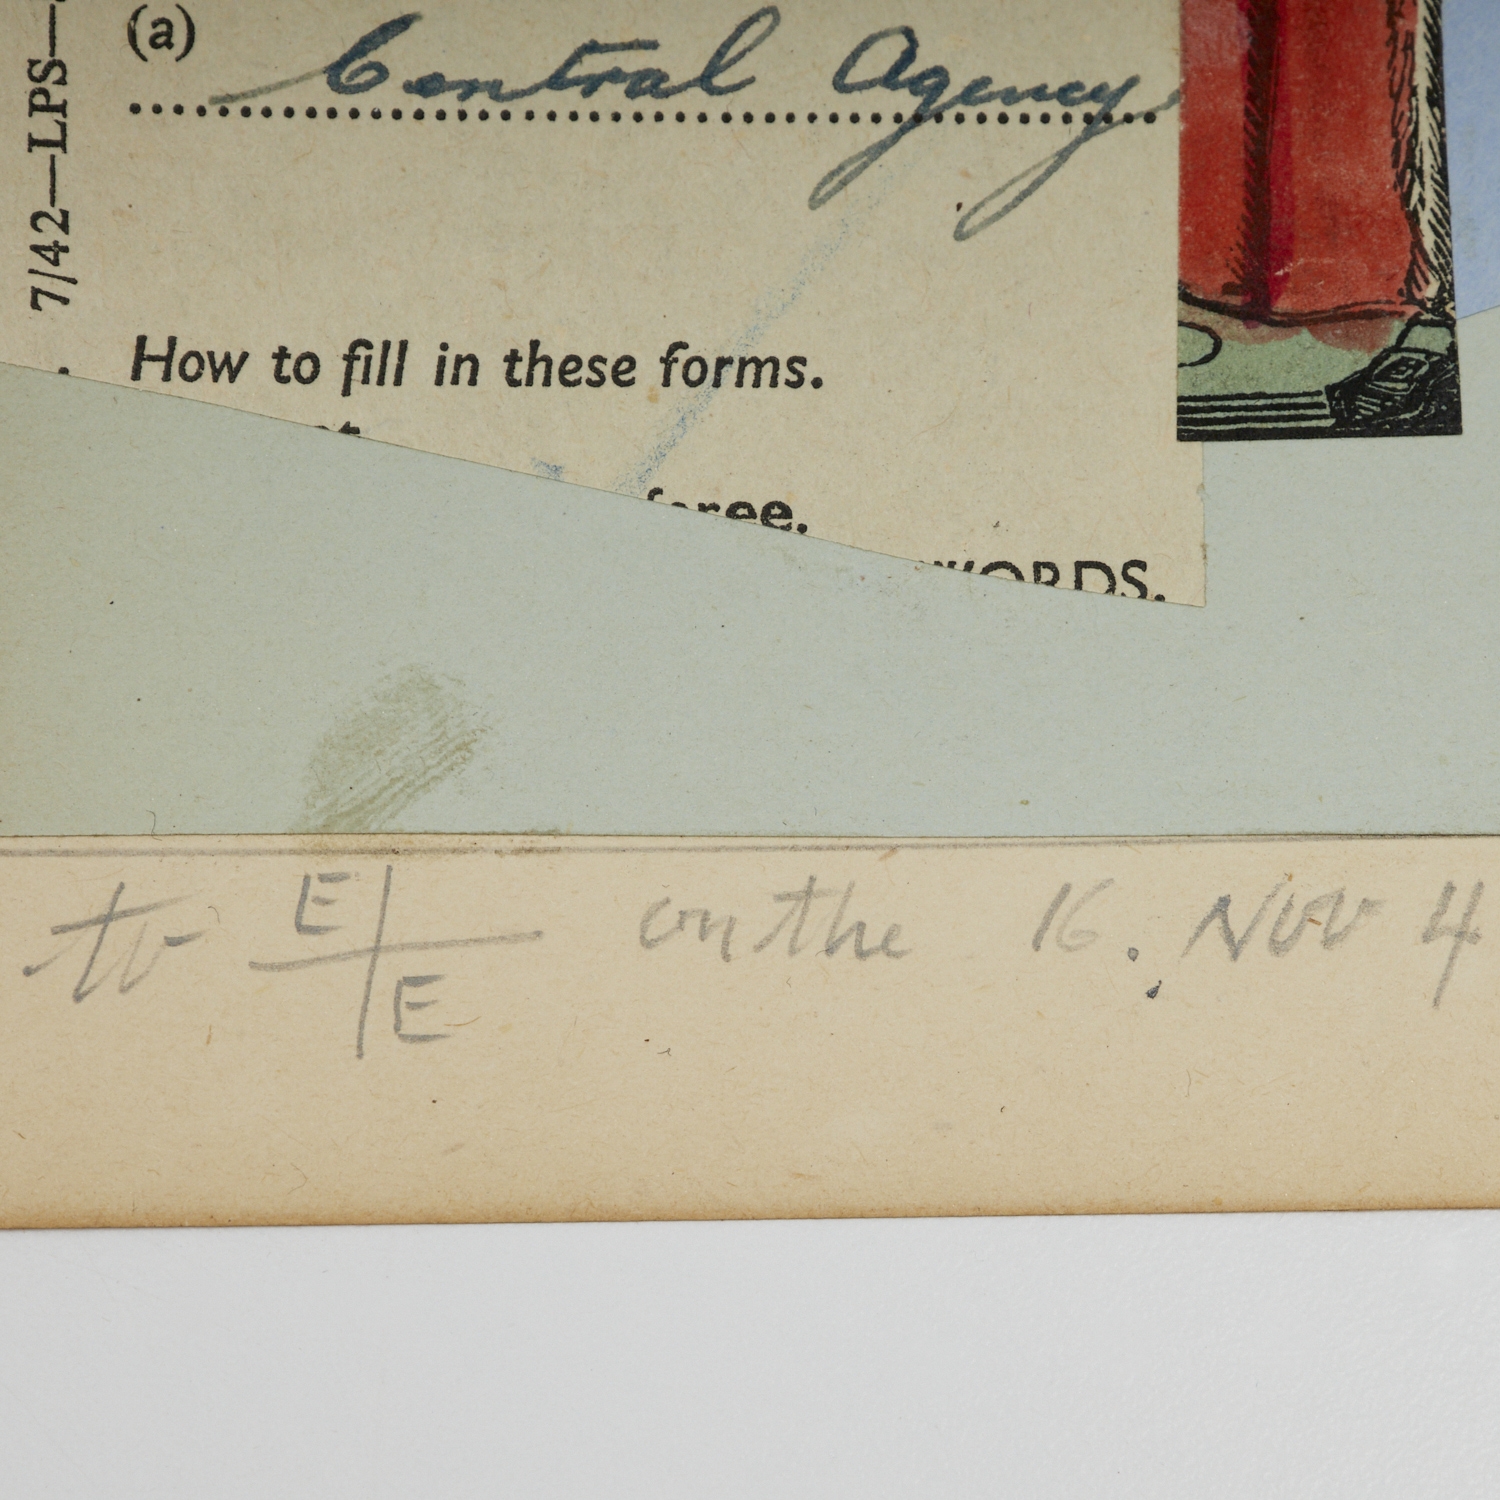 7/42—LPS—
(a)
Central Agency.
How to fill in these forms.
WORDS.
to E/E on the 16. Nov 4